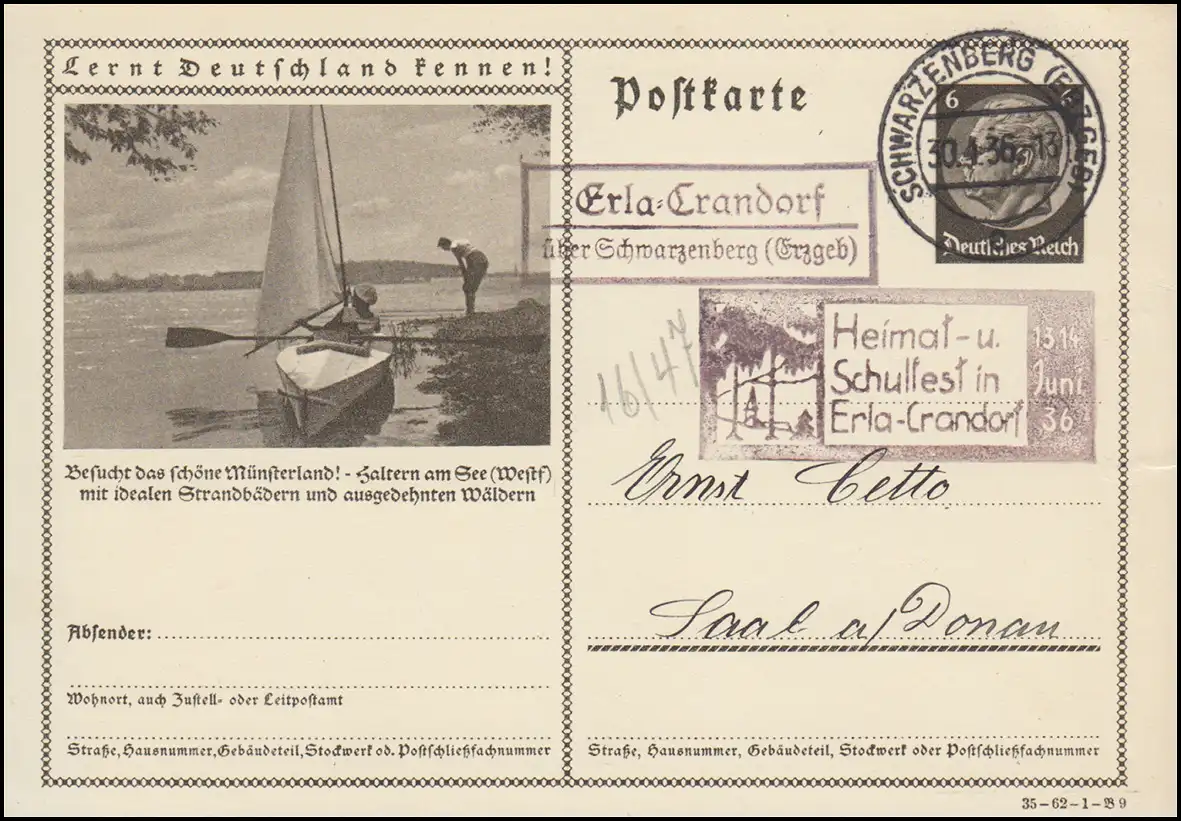 Lernt Deutschland kennen!
Besucht das schöne Münsterland! - Haltern am See (Westf)
mit idealen Strandbädern und ausgedehnten Wäldern
Absender:
Wohnort, auch Zustell- oder Leitpostamt
Straße, Hausnummer, Gebäudeteil, Stockwerk od. Postschließfachnummer
Postkarte
SCHWARZENBERG (ERZGEB)
30.4.36.-13
6
Deutsches Reich
Erla-Crandorf
über Schwarzenberg (Erzgeb)
Heimat- u.
Schulfest in
Erla-Crandorf
13 14
Juni
36
16/47
Ernst Cetto
Saal a/Donau
Straße, Hausnummer, Gebäudeteil, Stockwerk oder Postschließfachnummer
35-62-1-B 9